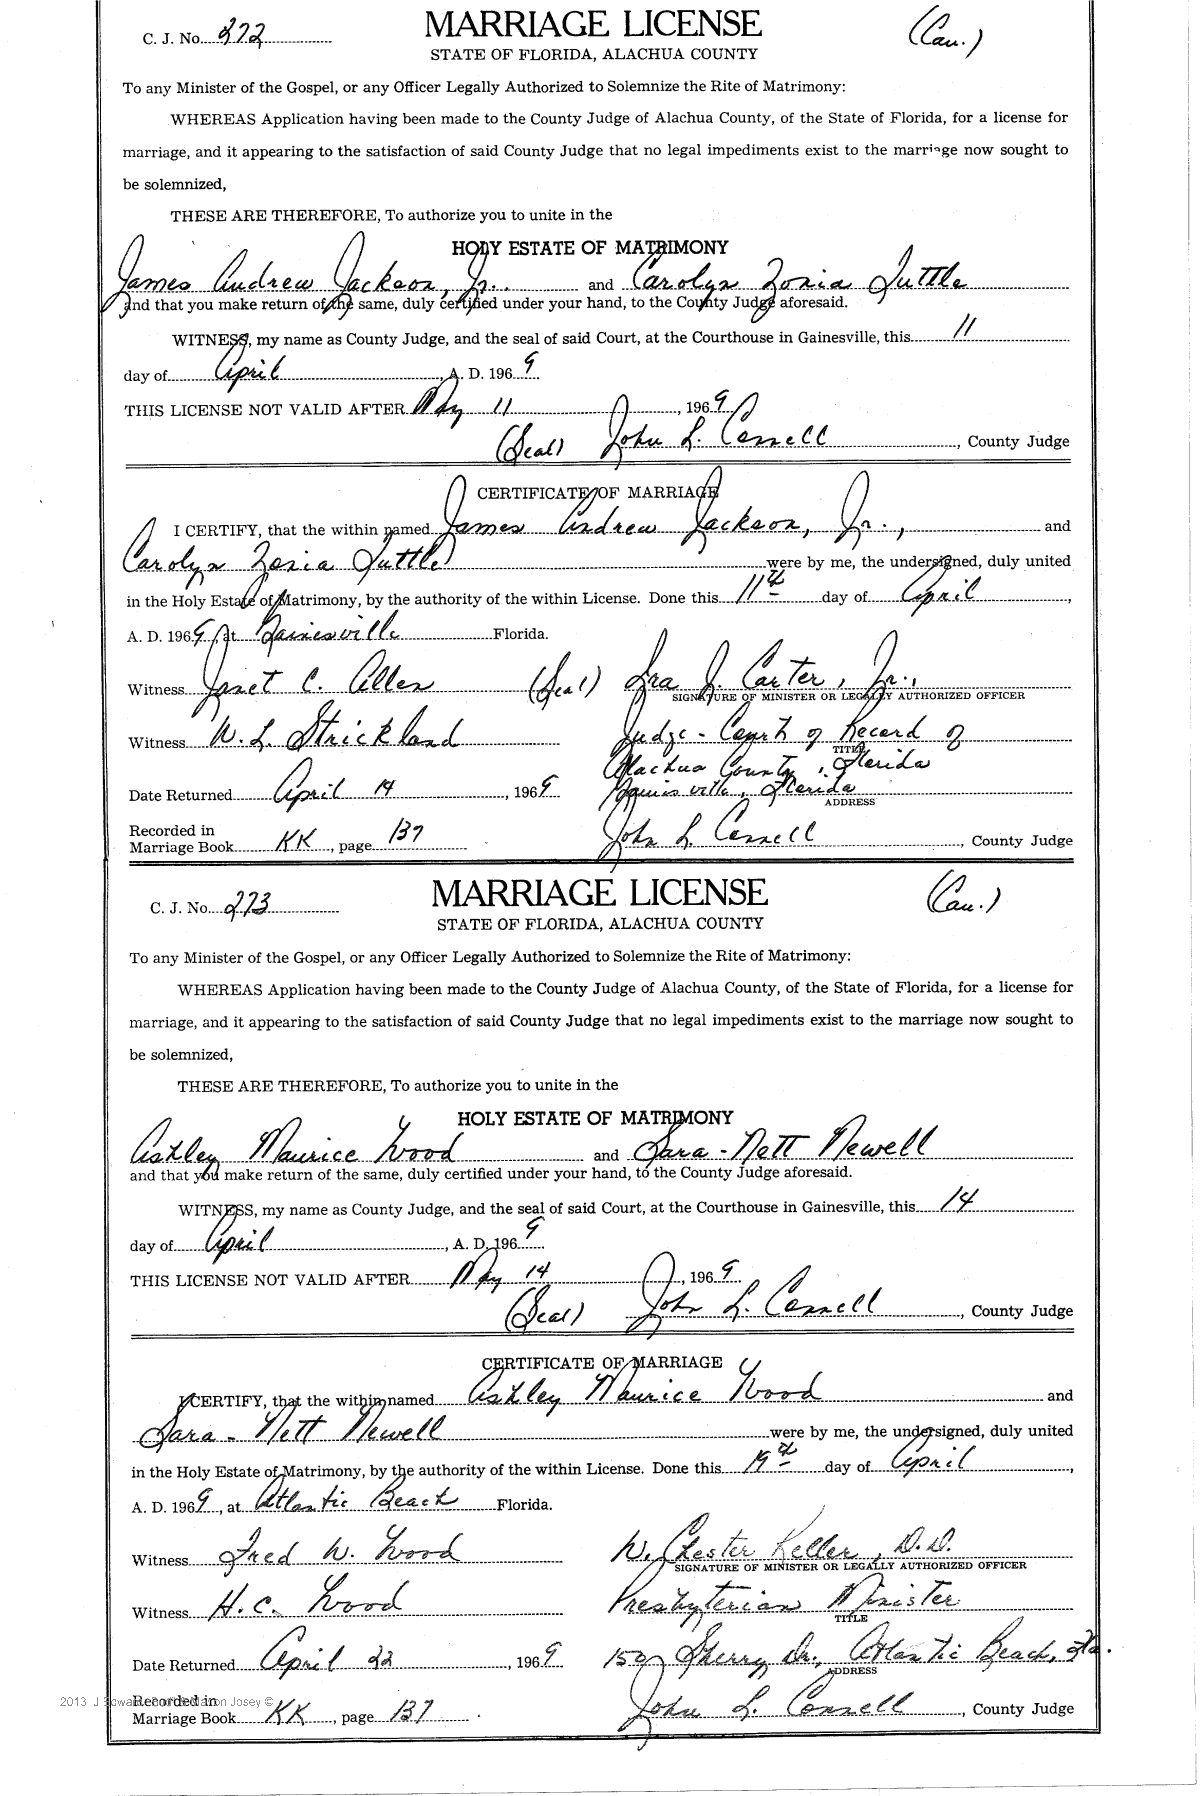 C. J. No. 272
MARRIAGE LICENSE
(Cau.)
STATE OF FLORIDA, ALACHUA COUNTY
To any Minister of the Gospel, or any Officer Legally Authorized to Solemnize the Rite of Matrimony:
WHEREAS Application having been made to the County Judge of Alachua County, of the State of Florida, for a license for
marriage, and it appearing to the satisfaction of said County Judge that no legal impediments exist to the marriage now sought to
be solemnized,
THESE ARE THEREFORE, To authorize you to unite in the
HOLY ESTATE OF MATRIMONY
James Andrew Jackson, Jr. and Carolyn Zonia Tuttle
and that you make return of the same, duly certified under your hand, to the County Judge aforesaid.
WITNESS, my name as County Judge, and the seal of said Court, at the Courthouse in Gainesville, this 11
day of April, A. D. 1969
THIS LICENSE NOT VALID AFTER May 11, 1969
(Seal) John L. Connell, County Judge
CERTIFICATE OF MARRIAGE
I CERTIFY, that the within named James Andrew Jackson, Jr., and
Carolyn Zonia Tuttle were by me, the undersigned, duly united
in the Holy Estate of Matrimony, by the authority of the within License. Done this 11th day of April,
A. D. 1969, at Gainesville Florida.
Witness Janet C. Allen (Seal) Ira J. Carter, Jr.,
SIGNATURE OF MINISTER OR LEGALLY AUTHORIZED OFFICER
Witness W. L. Strickland Judge - Court of Record of
TITLE
Alachua County, Florida
Date Returned April 14, 1969 Gainesville, Florida
ADDRESS
Recorded in
Marriage Book KK, page 137 John L. Connell, County Judge
C. J. No. 273
MARRIAGE LICENSE
(Cau.)
STATE OF FLORIDA, ALACHUA COUNTY
To any Minister of the Gospel, or any Officer Legally Authorized to Solemnize the Rite of Matrimony:
WHEREAS Application having been made to the County Judge of Alachua County, of the State of Florida, for a license for
marriage, and it appearing to the satisfaction of said County Judge that no legal impediments exist to the marriage now sought to
be solemnized,
THESE ARE THEREFORE, To authorize you to unite in the
HOLY ESTATE OF MATRIMONY
Ashley Maurice Wood and Sara-Nett Newell
and that you make return of the same, duly certified under your hand, to the County Judge aforesaid.
WITNESS, my name as County Judge, and the seal of said Court, at the Courthouse in Gainesville, this 14
day of April, A. D. 1969
THIS LICENSE NOT VALID AFTER May 14, 1969
(Seal) John L. Connell, County Judge
CERTIFICATE OF MARRIAGE
I CERTIFY, that the within named Ashley Maurice Wood and
Sara-Nett Newell were by me, the undersigned, duly united
in the Holy Estate of Matrimony, by the authority of the within License. Done this 19th day of April,
A. D. 1969, at Atlantic Beach Florida.
Witness Fred W. Wood W. Chester Keller, D.D.
SIGNATURE OF MINISTER OR LEGALLY AUTHORIZED OFFICER
Witness H. C. Wood Presbyterian Minister
TITLE
Date Returned April 22, 1969 Sherry Dr., Atlantic Beach, Fla.
ADDRESS
Recorded in
Marriage Book KK, page 137 John L. Connell, County Judge
2013 Josey ©